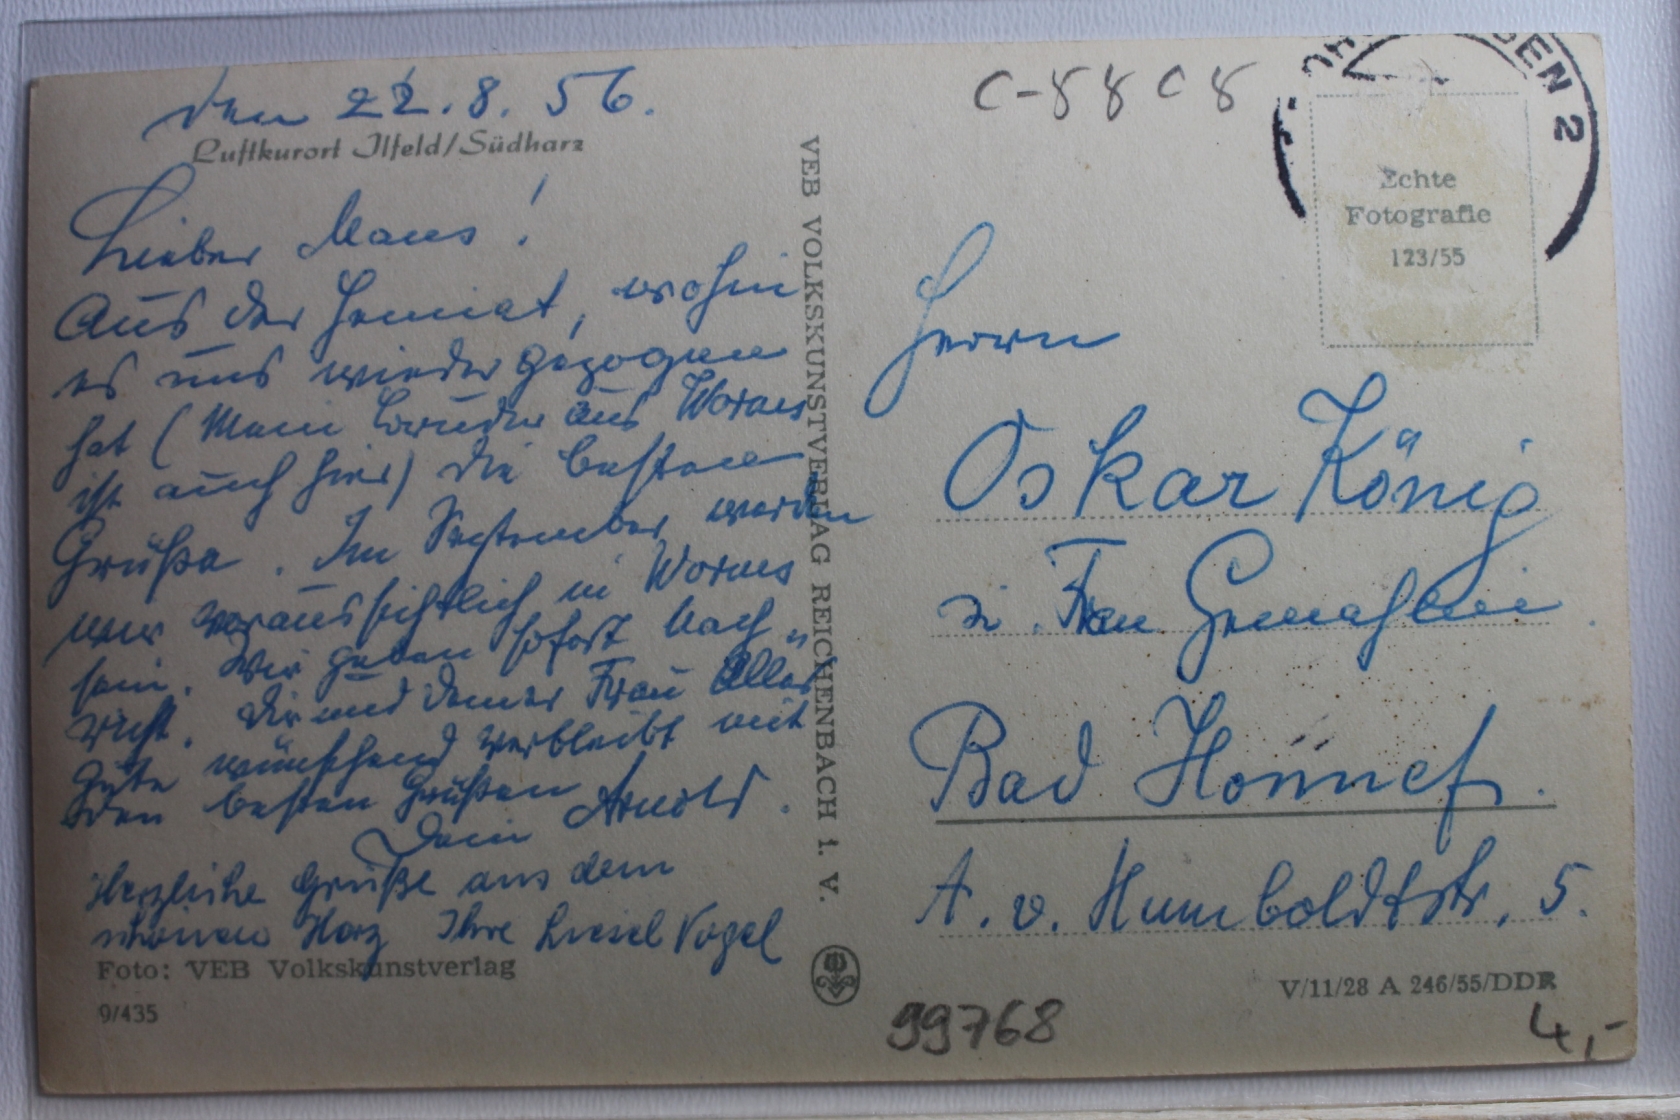 den 22.8.56.
Luftkurort Ilfeld/Südharz
Lieber Maus!
Aus der Heimat, wohin
es uns wieder gezogen
hat (Mein Bruder aus Worms
ist auch hier) die besten
Grüße. Im September werden
wir voraussichtlich in Worms
sein. Wir geben sofort Nach"
richt. Dir und deiner Frau Alles
Gute wünschend verbleibt mit
den besten Grüßen
Dein Arnold.
Herzliche Grüße aus dem
schönen Harz Ihre Liesel Vogel
Foto: VEB Volkskunstverlag
9/435
VEB VOLKSKUNSTVERLAG REICHENBACH i. V.
C-5808
DEN 2
Echte
Fotografie
123/55
Herrn
Oskar König
u. Frau Gemahlin.
Bad Honnef.
A. v. Humboldtstr. 5.
V/11/28 A 246/55/DDR
99768
4,-